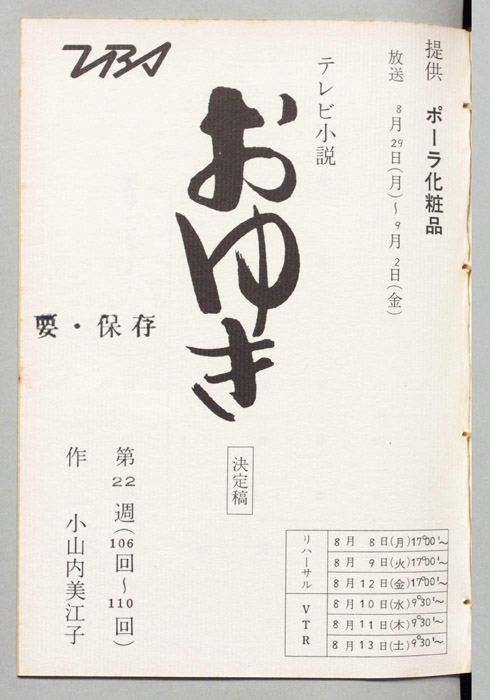 提供 ポーラ化粧品
放送 8月29日(月)〜9月2日(金)
テレビ小説
おゆき
TBS
要・保存
決定稿
第22週(106回〜110回)
作 小山内美江子
リハーサル
8月 8日(月)17°00'〜
8月 9日(火)17°00'〜
8月12日(金)17°00'〜
VTR
8月10日(水)9°30'〜
8月11日(木)9°30'〜
8月13日(土)9°30'〜